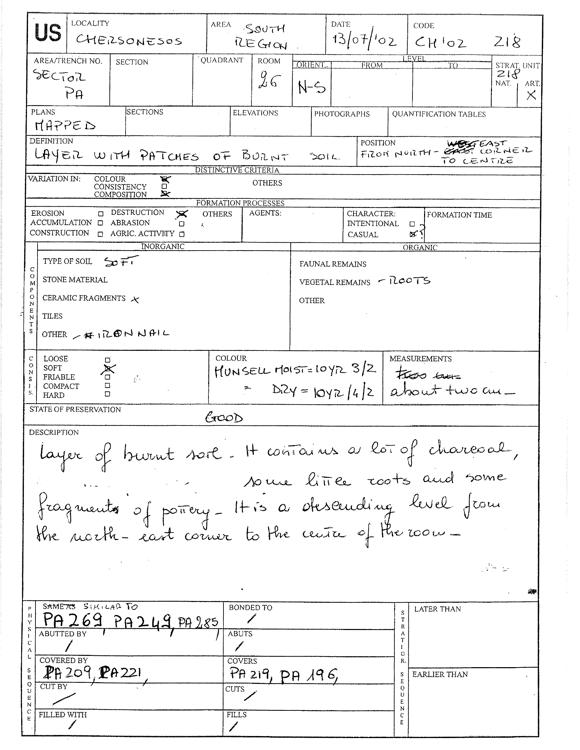 US
LOCALITY
CHERSONESOS
AREA SOUTH
REGION
DATE
13/07/'02
CODE
CH'02 218
AREA/TRENCH NO.
SECTOR
PA
SECTION
QUADRANT
ROOM
26
ORIENT.
N-S
LEVEL
FROM
TO
STRAT. UNIT
218
NAT. ART.
X
PLANS
MAPPED
SECTIONS
ELEVATIONS
PHOTOGRAPHS
QUANTIFICATION TABLES
DEFINITION
LAYER WITH PATCHES OF BURNT SOIL
POSITION
FROM NORTH-EAST CORNER
TO CENTRE
DISTINCTIVE CRITERIA
VARIATION IN: COLOUR
CONSISTENCY
COMPOSITION
OTHERS
FORMATION PROCESSES
EROSION DESTRUCTION OTHERS
ACCUMULATION ABRASION
CONSTRUCTION AGRIC. ACTIVITY
AGENTS:
CHARACTER:
INTENTIONAL
CASUAL ?
FORMATION TIME
COMPONENTS
INORGANIC
TYPE OF SOIL SOFT
STONE MATERIAL
CERAMIC FRAGMENTS X
TILES
OTHER - IRON NAIL
ORGANIC
FAUNAL REMAINS
VEGETAL REMAINS - ROOTS
OTHER
CONSIS.
LOOSE
SOFT
FRIABLE
COMPACT
HARD
COLOUR
MUNSELL MOIST = 10YR 3/2
" DRY = 10YR/4/2
MEASUREMENTS
about two cm
STATE OF PRESERVATION
GOOD
DESCRIPTION
Layer of burnt soil - It contains a lot of charcoal,
some little roots and some
fragments of pottery - It is a descending level from
the north-east corner to the centre of the room -
PHYSICAL SEQUENCE
SAME AS SIMILAR TO
PA269, PA249, PA285
BONDED TO
/
ABUTTED BY
/
ABUTS
/
COVERED BY
PA209, PA221,
COVERS
PA219, PA196,
CUT BY
/
CUTS
/
FILLED WITH
/
FILLS
/
STRATIGR. SEQUENCE
LATER THAN
EARLIER THAN